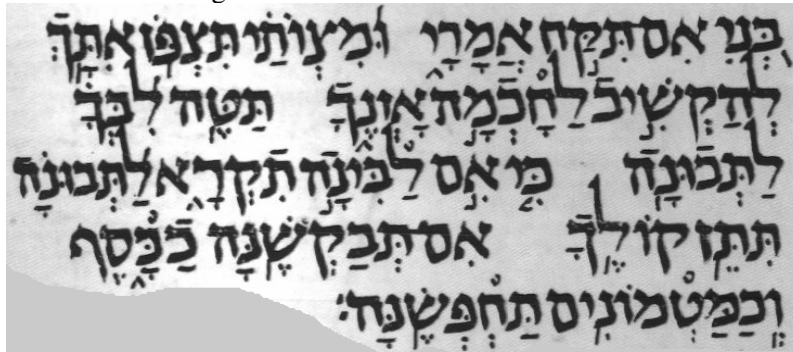 בְּנִי אִם תִּקַּח אֲמָרָי וּמִצְוֹתַי תִּצְפֹּן אִתָּךְ
לְהַקְשִׁיב לַחָכְמָה אָזְנֶךָ תַּטֶּה לִבְּךָ
לַתְּבוּנָה כִּי אִם לַבִּינָה תִקְרָא לַתְּבוּנָה
תִּתֵּן קוֹלֶךָ אִם תְּבַקְשֶׁנָּה כַכָּסֶף
וְכַמַּטְמוֹנִים תַּחְפְּשֶׂנָּה׃